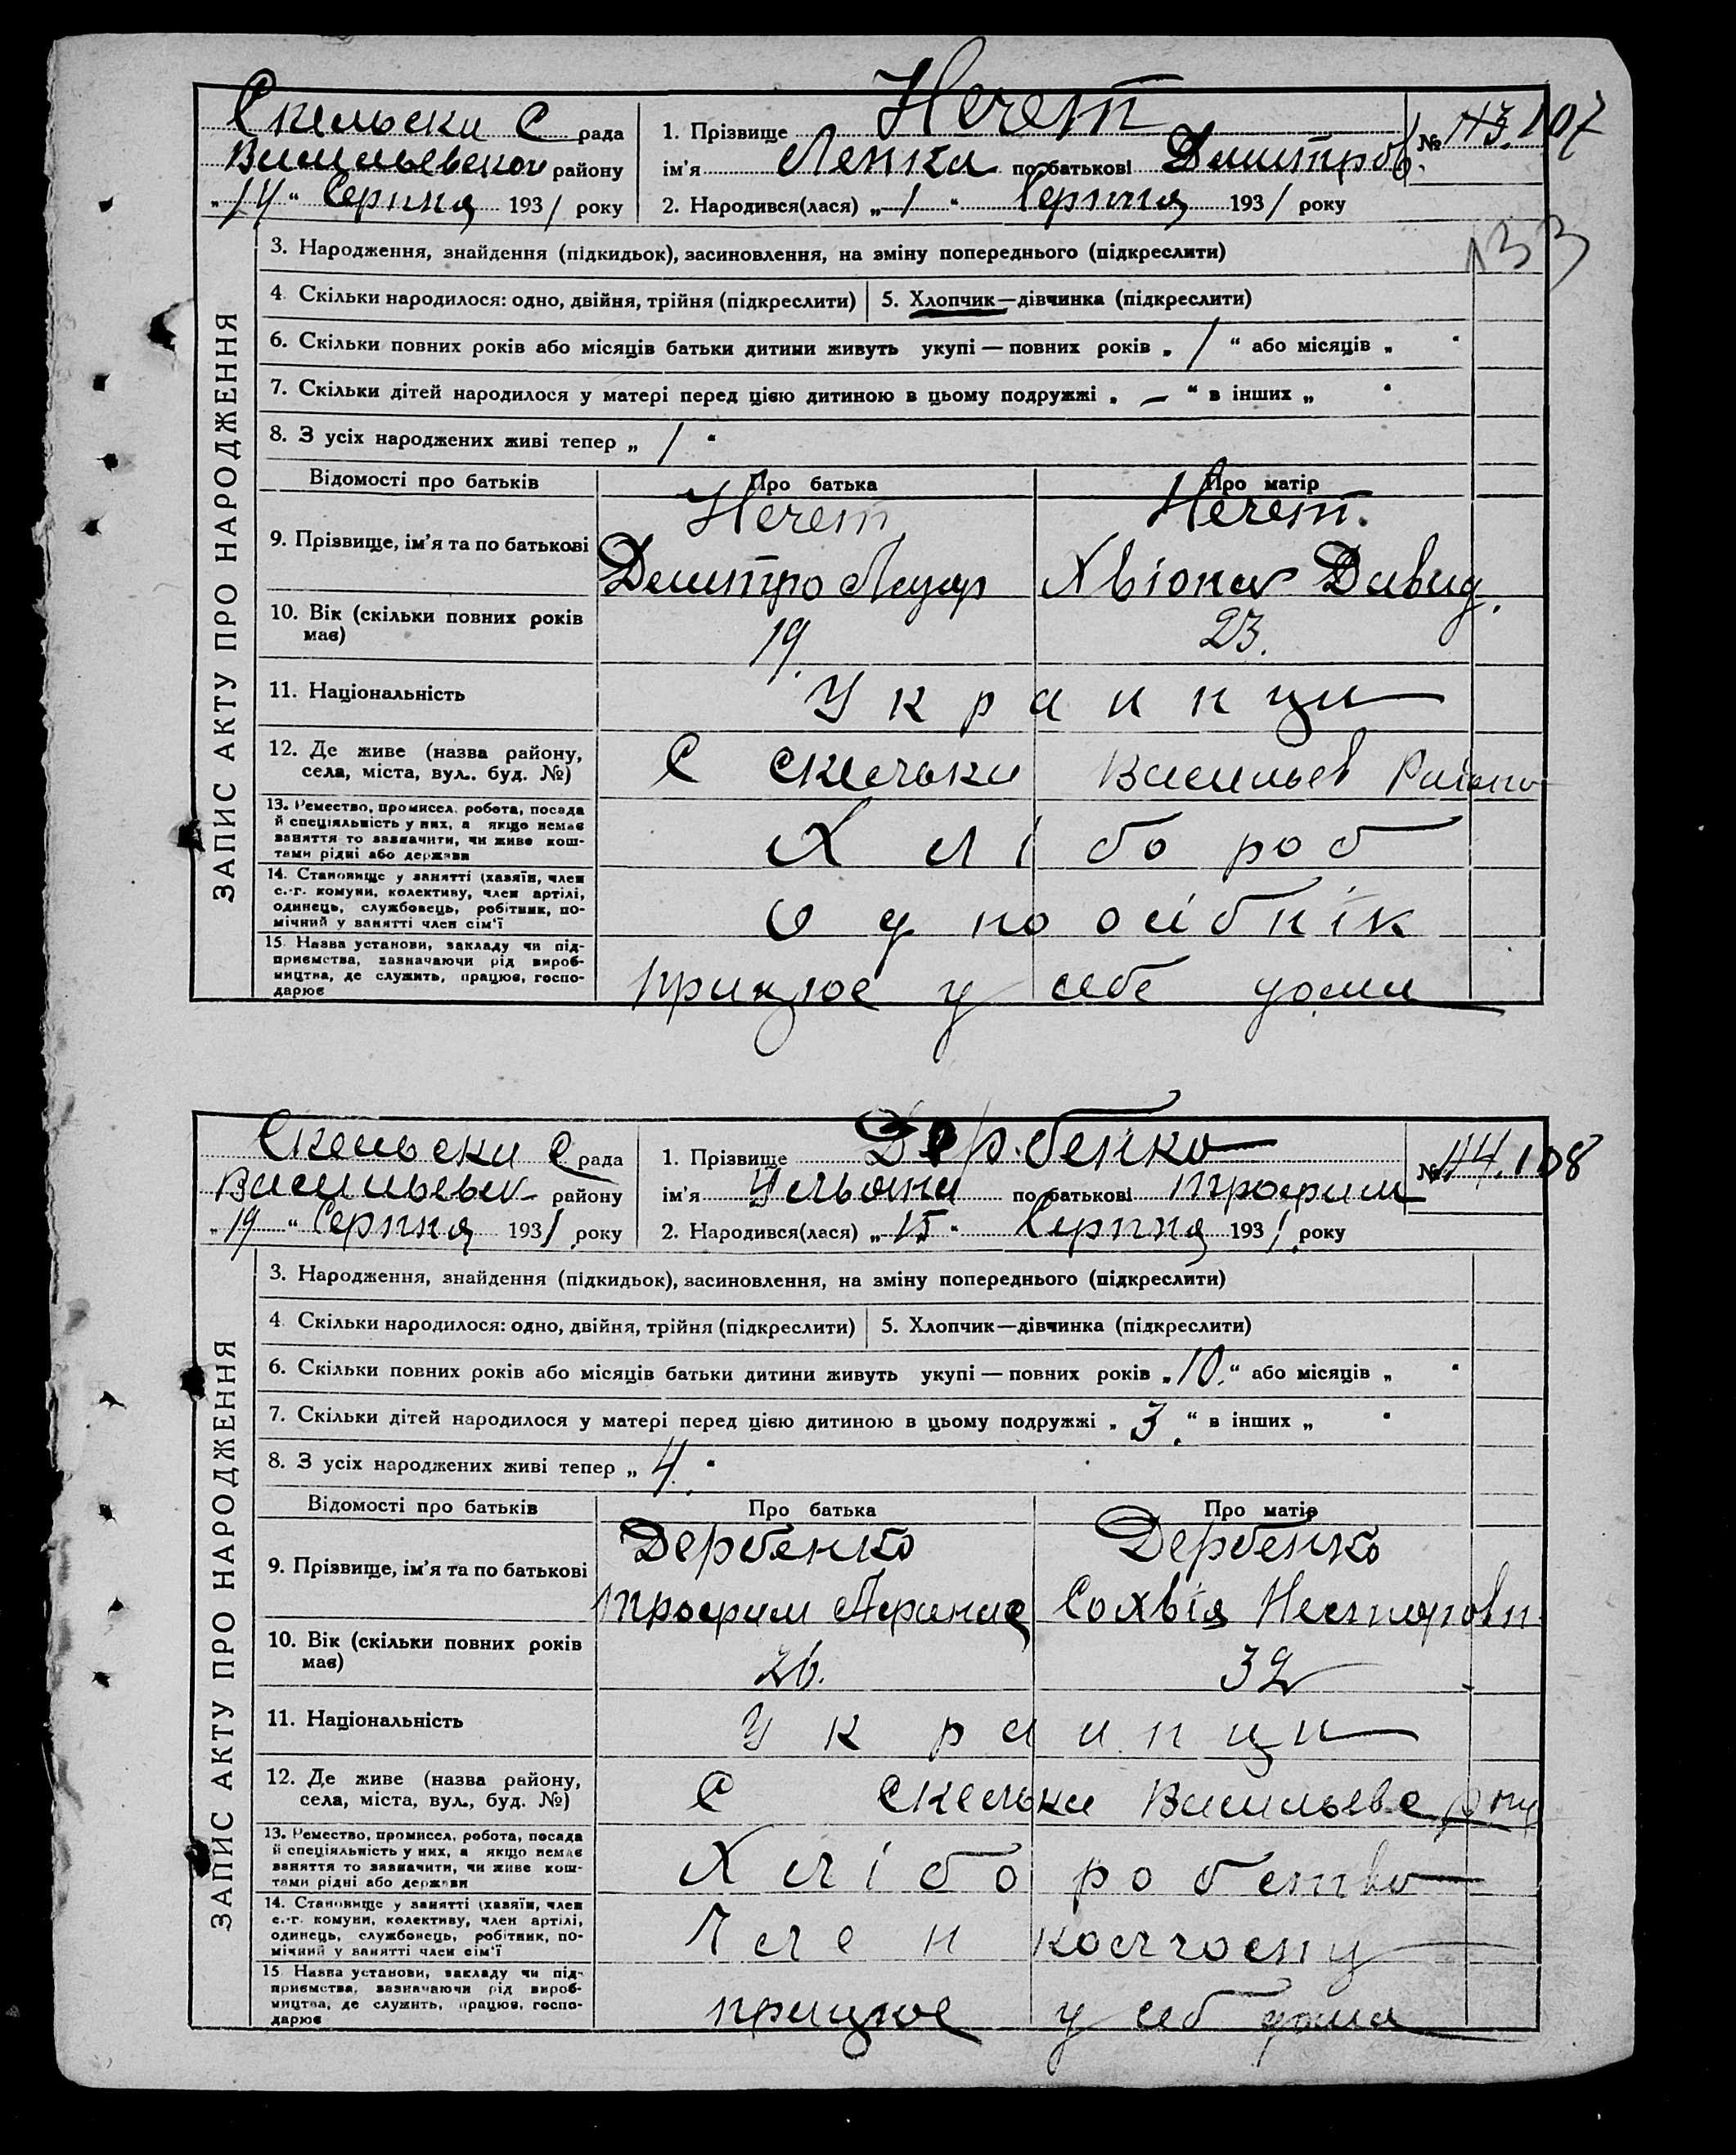 Скельска С рада
Васильевскои району
„14“ Серпня 1931 року
1. Прізвище Нечет
ім'я по батькові Дмитров.
№ 113. 107
2. Народився(лася) „1“ Серпня 1931 року
133
ЗАПИС АКТУ ПРО НАРОДЖЕННЯ
3. Народження, знайдення (підкидьок), засиновлення, на зміну попереднього (підкреслити)
4. Скільки народилося: одно, двійня, трійня (підкреслити) 5. Хлопчик—дівчинка (підкреслити)
6. Скільки повних років або місяців батьки дитини живуть укупі — повних років „1“ або місяців „ “
7. Скільки дітей народилося у матері перед цією дитиною в цьому подружжі „—“ в інших „ “
8. З усіх народжених живі тепер „1“
Відомості про батьків Про батька Про матір
9. Прізвище, ім'я та по батькові
Нечет Нечет.
Дмитро Лазар Хвіона Давид.
10. Вік (скільки повних років має) 19. 23.
11. Національність Украинци
12. Де живе (назва району, села, міста, вул.. буд. №) С Скельки Васильев Району
13. Ремество, промисел, робота, посада
й спеціяльність у них, а якщо немає
заняття то зазначити, чи живе кош-
тами рідні або держави
Хлібороб
14. Становище у занятті (хазяїн, член
с.-г. комуни, колективу, член артілі,
одинець, службовець, робітник, по-
мічний у занятті член сім'ї
Одноосібнік
15. Назва установи, закладу чи під-
приємства, зазначаючи рід вироб-
ництва, де служить, працює, госпо-
дарює
працює у себе дома
Скельска С рада
Васильевск району
„19“ Серпня 1931 року
1. Прізвище Дербенко
ім'я Ульяна по батькові Трофим
№ 114. 108
2. Народився(лася) „15“ Серпня 1931 року
ЗАПИС АКТУ ПРО НАРОДЖЕННЯ
3. Народження, знайдення (підкидьок), засиновлення, на зміну попереднього (підкреслити)
4. Скільки народилося: одно, двійня, трійня (підкреслити) 5. Хлопчик—дівчинка (підкреслити)
6. Скільки повних років або місяців батьки дитини живуть укупі — повних років „10.“ або місяців „ “
7. Скільки дітей народилося у матері перед цією дитиною в цьому подружжі „3.“ в інших „ “
8. З усіх народжених живі тепер „4.“
Відомості про батьків Про батька Про матір
9. Прізвище, ім'я та по батькові
Дербенко Дербенко
Трофим Афанас Сохвія Несторовн
10. Вік (скільки повних років має) 26. 32
11. Національність Украинци
12. Де живе (назва району, села, міста, вул., буд. №) С Скельки Васильевс
13. Ремество, промисел, робота, посада
й спеціяльність у них, а якщо немає
заняття то зазначити, чи живе кош-
тами рідні або держави
Хліборобство
14. Становище у занятті (хазяїн, член
с.-г. комуни, колективу, член артілі,
одинець, службовець, робітник, по-
мічний у занятті член сім'ї
Член колгоспу
15. Назва установи, закладу чи під-
приємства, зазначаючи рід вироб-
ництва, де служить, працює, госпо-
дарює
працює у себ дома